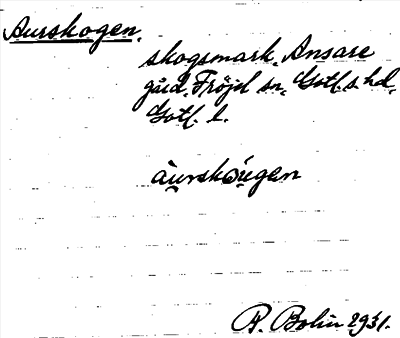 Aurskogen.
skogsmark, Ansare
gård, Fröjel sn, Gotl. s. hd,
Gotl. l.
àurskóugen
R. Bolin 1931.